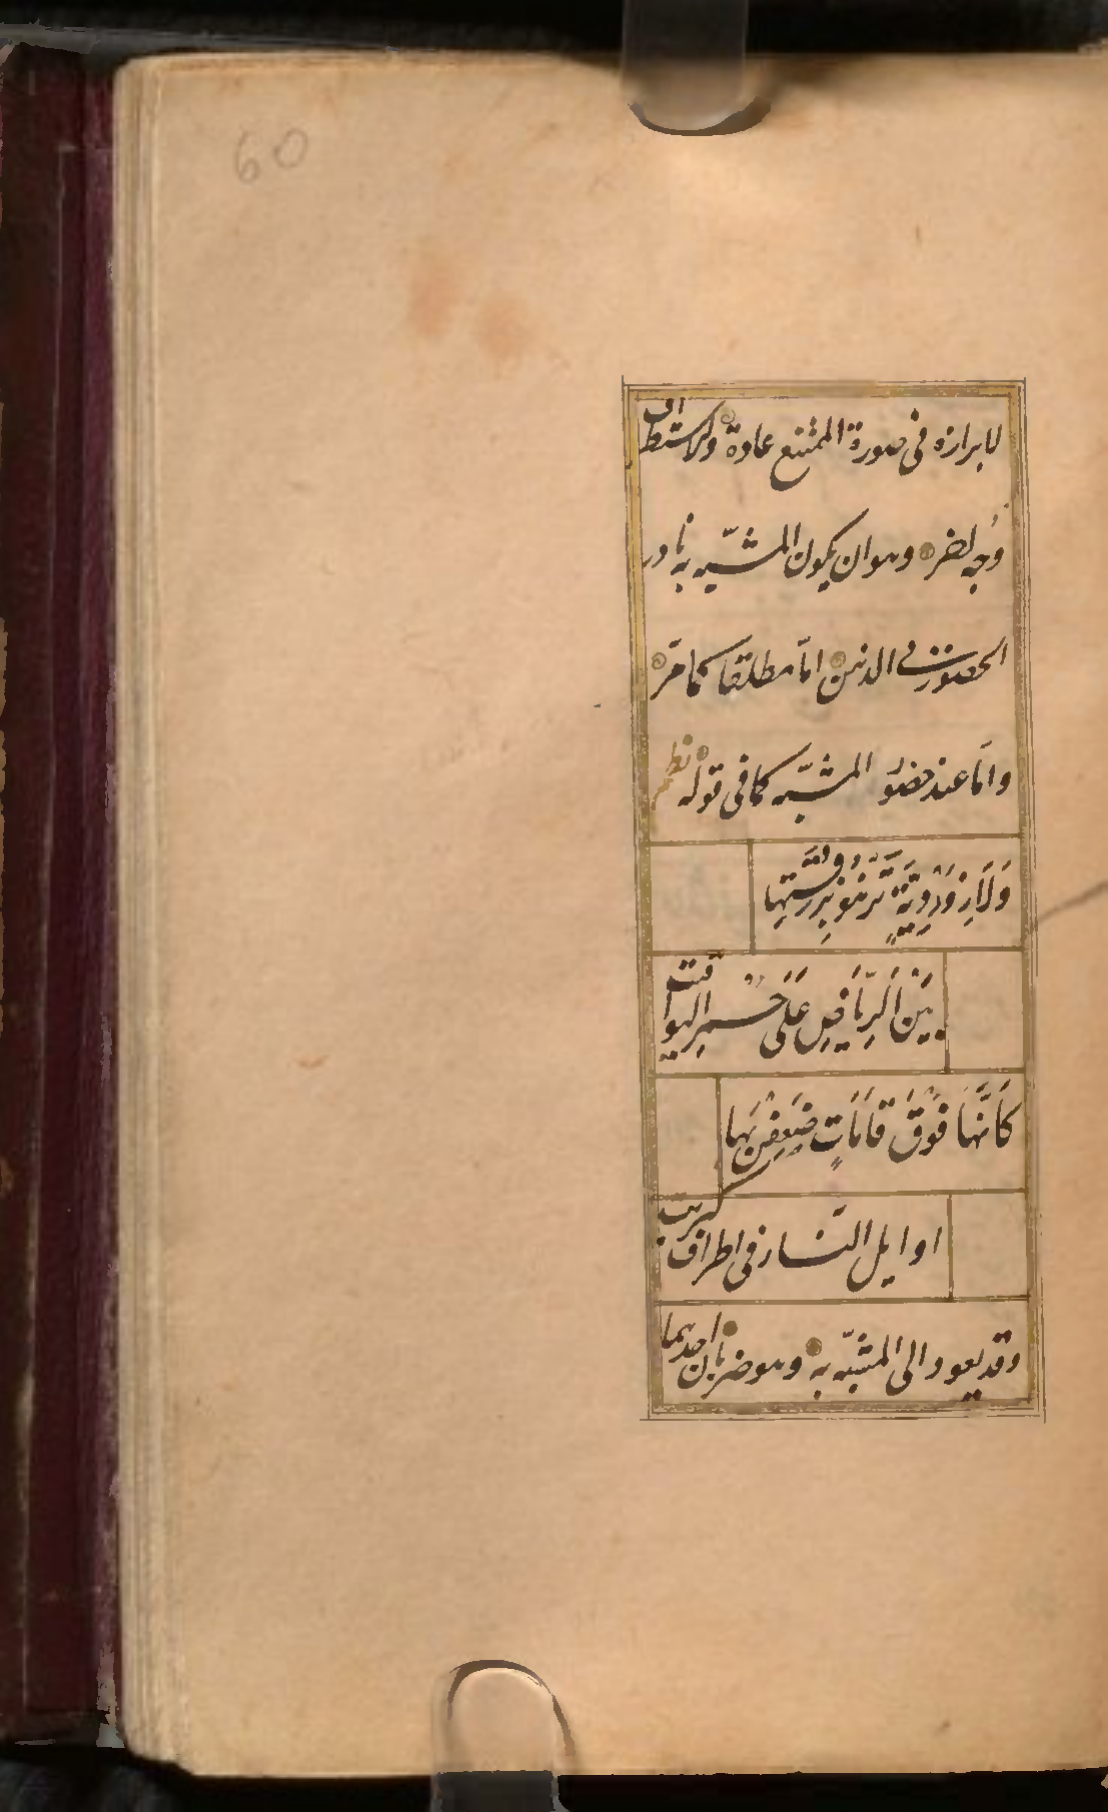 60
لابرازه فى صورة الممتنع عادة وللاستطراف
وجه اخر وهو ان يكون المشبه به نادر
الحضور فى الذهن اما مطلقا كما مر
واما عند حضور المشبّه كما فى قوله نظم
وَلَازَوَرْدِيَّةٍ تَزْهُو بِزُرْقَتِهَا
بَيْنَ الرِّيَاضِ عَلَى حُمْرِ الْيَوَاقيت
كَأَنَّهَا فَوْقَ قَامَاتٍ ضَعُفْنَ بِهَا
اوايل النّار فى اطراف كبريت
وقد يعود الى المشبّه به وهو ضربان احدهما